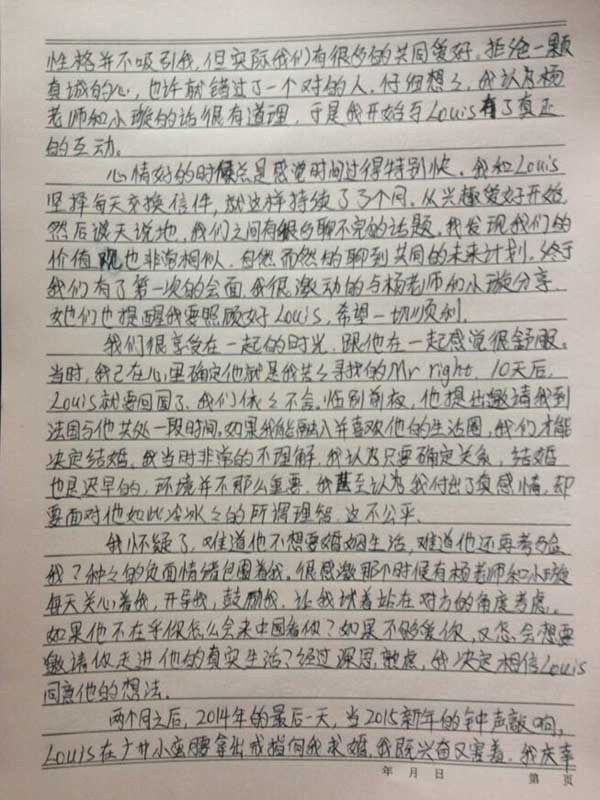 性格并不吸引我,但实际我们有很多的共同爱好。拒绝一颗
真诚的心,也许就错过了一个对的人。仔细想々,我认为杨
老师和小璇的话很有道理,于是我开始与Louis有了真正
的互动。
心情好的时候总是感觉时间过得特别快。我和Louis
坚择每天交换信件,就这样持续了3个月。从兴趣爱好开始
然后谈天说地,我们之间有很多聊不完的话题。我发现我们的
价值观也非常相似,自然而然的聊到共同的未来计划。终于
我们有了第一次的会面,我很激动的与杨老师和小璇分享
她们也提醒我要照顾好Louis,希望一切顺利。
我们很享受在一起的时光,跟他在一起感觉很舒服。
当时,我已在心里确定他就是我苦々寻找的Mr right。10天后,
Louis就要回国了,我们依々不舍。临别前夜,他提出邀请我到
法国与他共处一段时间,如果我能融入并喜欢他的生活圈,我们才能
决定结婚。我当时非常的不理解,我认为只要确定关系,结婚
也是迟早的,环境并不那么重要。我甚至认为我付出了真感情,却
要面对他如此冷冰々的所谓理智,这不公平。
我怀疑了,难道他不想要婚姻生活,难道他还再考验
我?种々的负面情绪包围着我。很感激那个时候有杨老师和小璇
每天关心着我,开导我,鼓励我,让我试着站在对方的角度考虑。
如果他不在乎你怎么会来中国看你?如果不够爱你,又怎会想要
邀请你走进他的真实生活?经过深思熟虑,我决定相信Louis
同意他的想法。
两个月之后,2014年的最后一天,当2015新年的钟声敲响,
Louis在广州小蛮腰拿出戒指向我求婚,我既兴奋又害羞。我庆幸
年 月 日 第 页